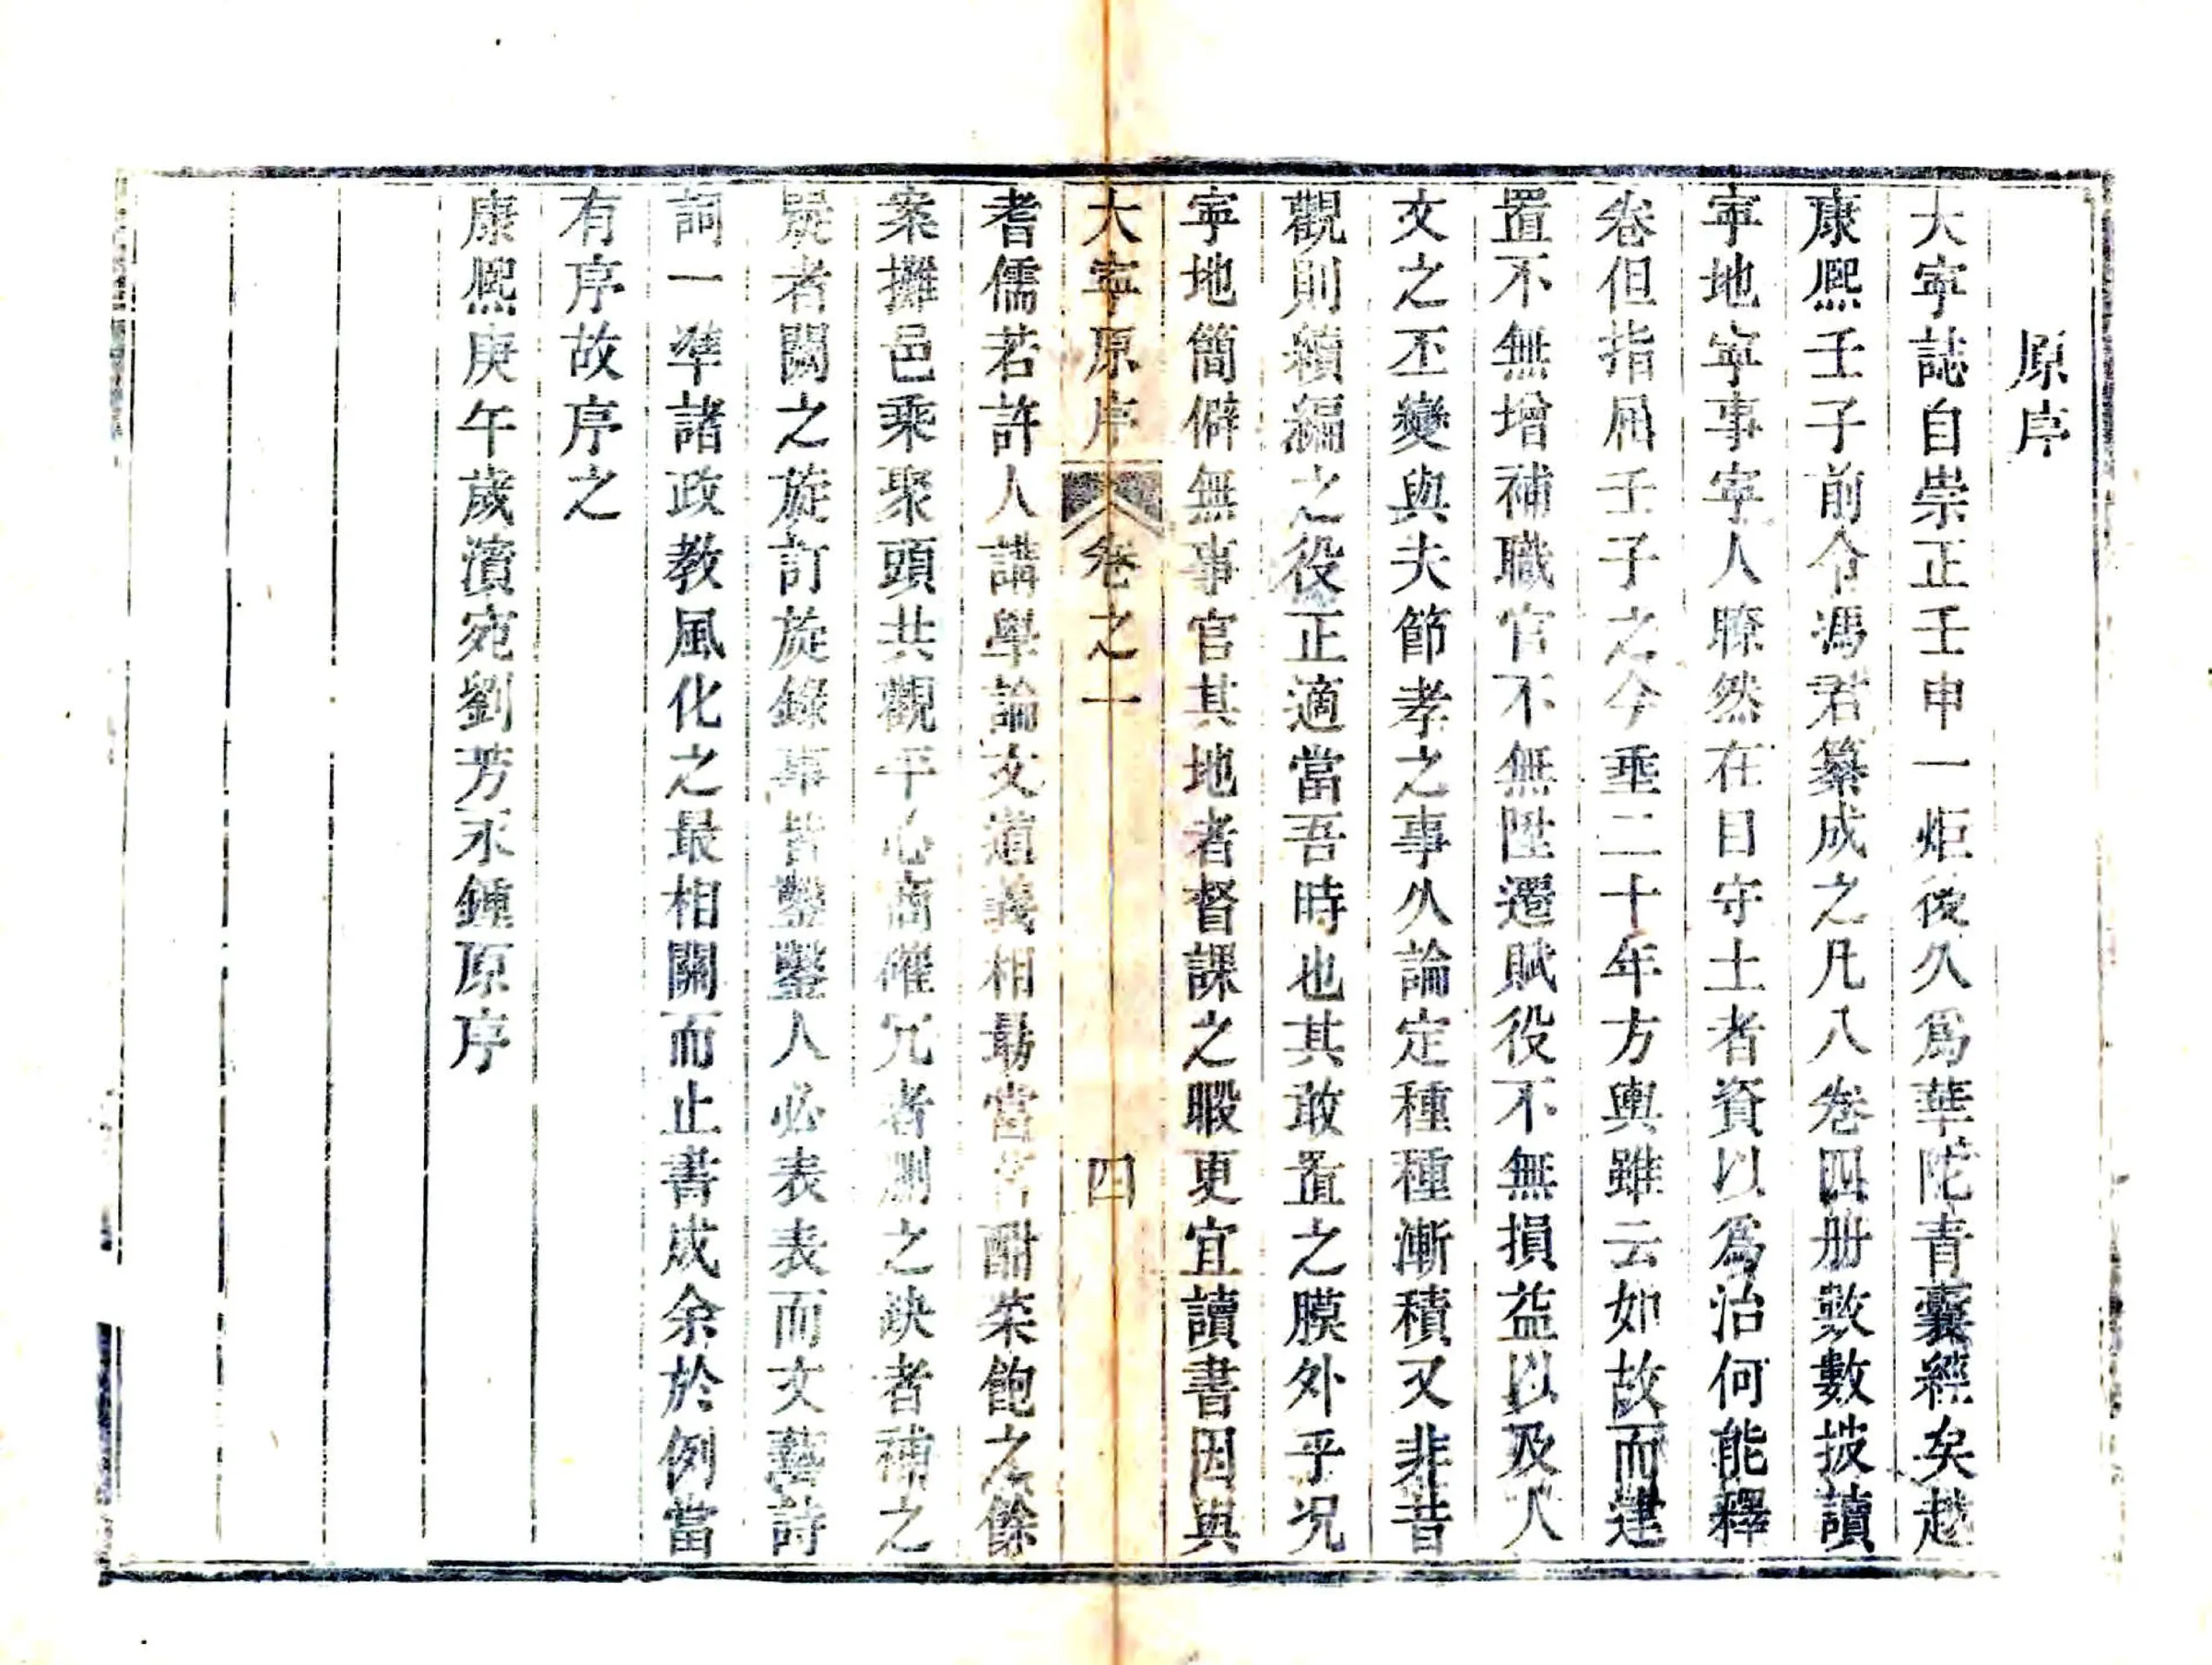 原序
大寧誌自崇正壬申一炬後久爲華陀青囊經矣越
康熙壬子前令馮君纂成之凡八卷四册數數披讀
寧地寧事寧人瞭然在目守土者資以爲治何能釋
卷但指屈壬子之今垂二十年方輿雖云如故而建
置不無增補職官不無陞遷賦役不無損益以及人
文之丕變與夫節孝之事久論定種種漸積又非昔
觀則續編之役正適當吾時也其敢置之膜外乎況
寧地簡僻無事官其地者督課之暇更宜讀書因與
大寧原序 卷之一 四
耆儒若許人講學論文道義相勗當酣茶飽之餘
案攤邑乘聚頭共觀平心商確冗者刪之缺者補之
疑者闕之旋訂旋錄事皆鑿鑿人必表表而文藝詩
詞一準諸政教風化之最相關而止書成余於例當
有序故序之
康熙庚午歲濱宛劉芳永鍾原序